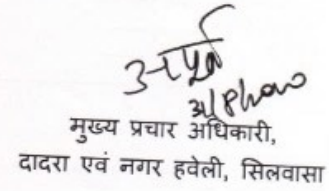 मुख्य प्रचार अधिकारी,
दादरा एवं नगर हवेली, सिलवासा